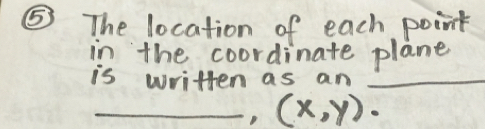 ⑤ The location of each point
in the coordinate plane
is written as an ________
________, (x,y).